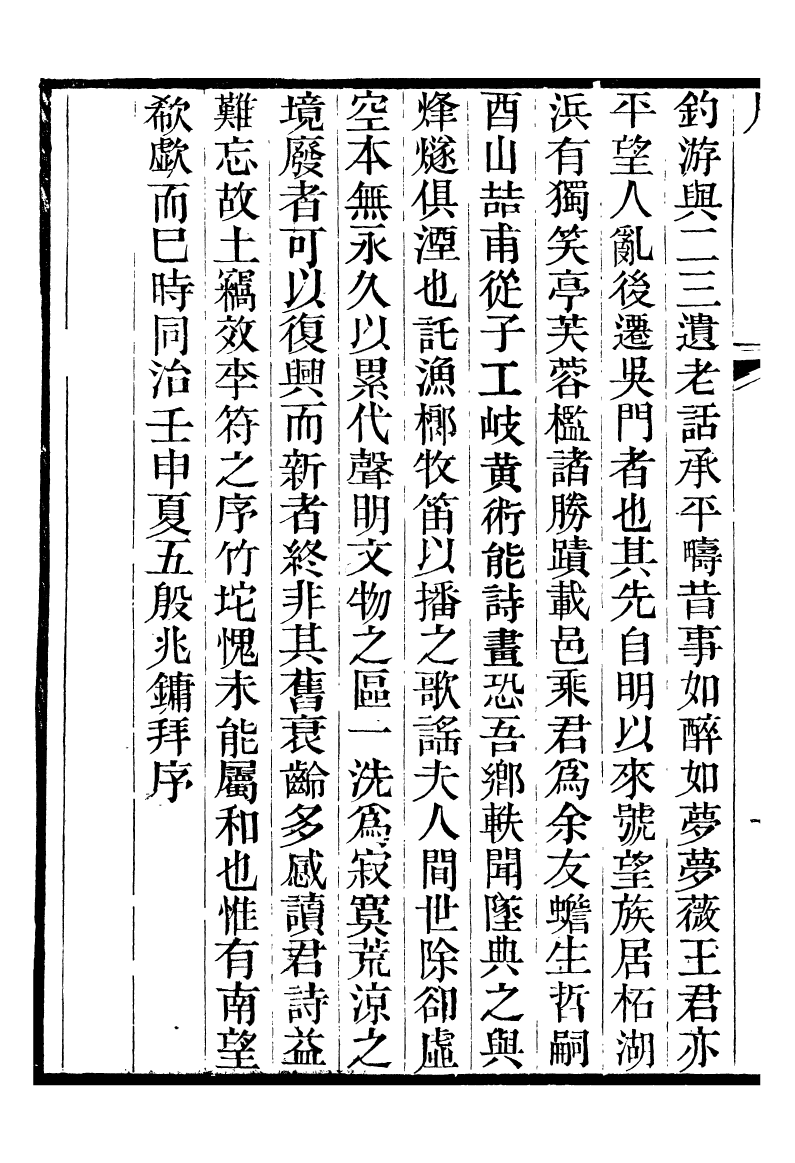 釣游與二三遺老話承平疇昔事如醉如夢夢薇王君亦
平望人亂後遷吳門者也其先自明以來號望族居柘湖
浜有獨笑亭芙蓉檻諸勝蹟載邑乘君爲余友蟾生哲嗣
酉山喆甫從子工岐黃術能詩畫恐吾鄉軼聞墜典之與
烽燧俱湮也託漁榔牧笛以播之歌謠夫人間世除卻虛
空本無永久以累代聲明文物之區一洗爲寂寞荒涼之
境廢者可以復興而新者終非其舊衰齡多感讀君詩益
難忘故土竊效李符之序竹垞愧未能屬和也惟有南望
欷歔而巳時同治壬申夏五殷兆鏞拜序